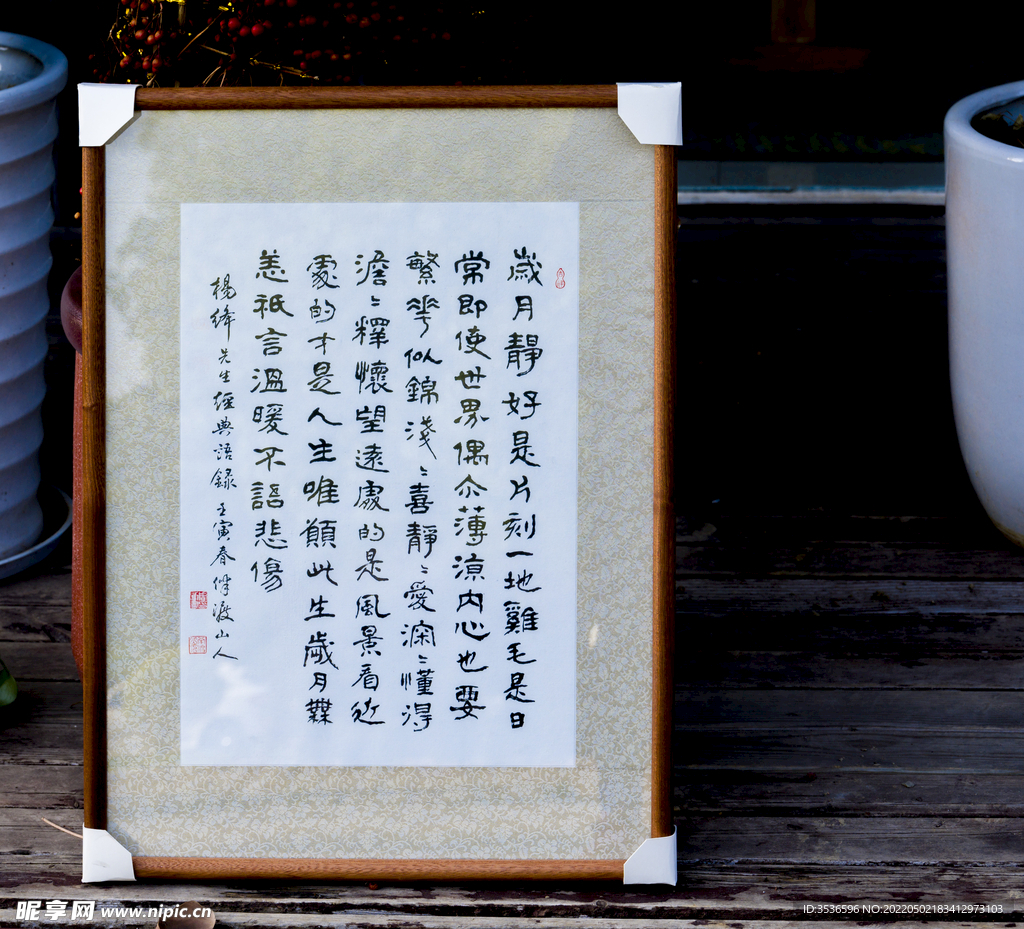 歲月靜好是片刻一地雞毛是日
常即使世界偶尒薄涼内心也要
繁華似錦淺〻喜靜〻愛深〻懂得
澹〻釋懷望遠處的是風景看近
處的才是人生唯願此生歲月無
恙祇言溫暖不語悲傷
楊絳先生經典語錄 壬寅春 山人
昵享网 www.nipic.cn
ID:3536596 NO:20220502183412973103